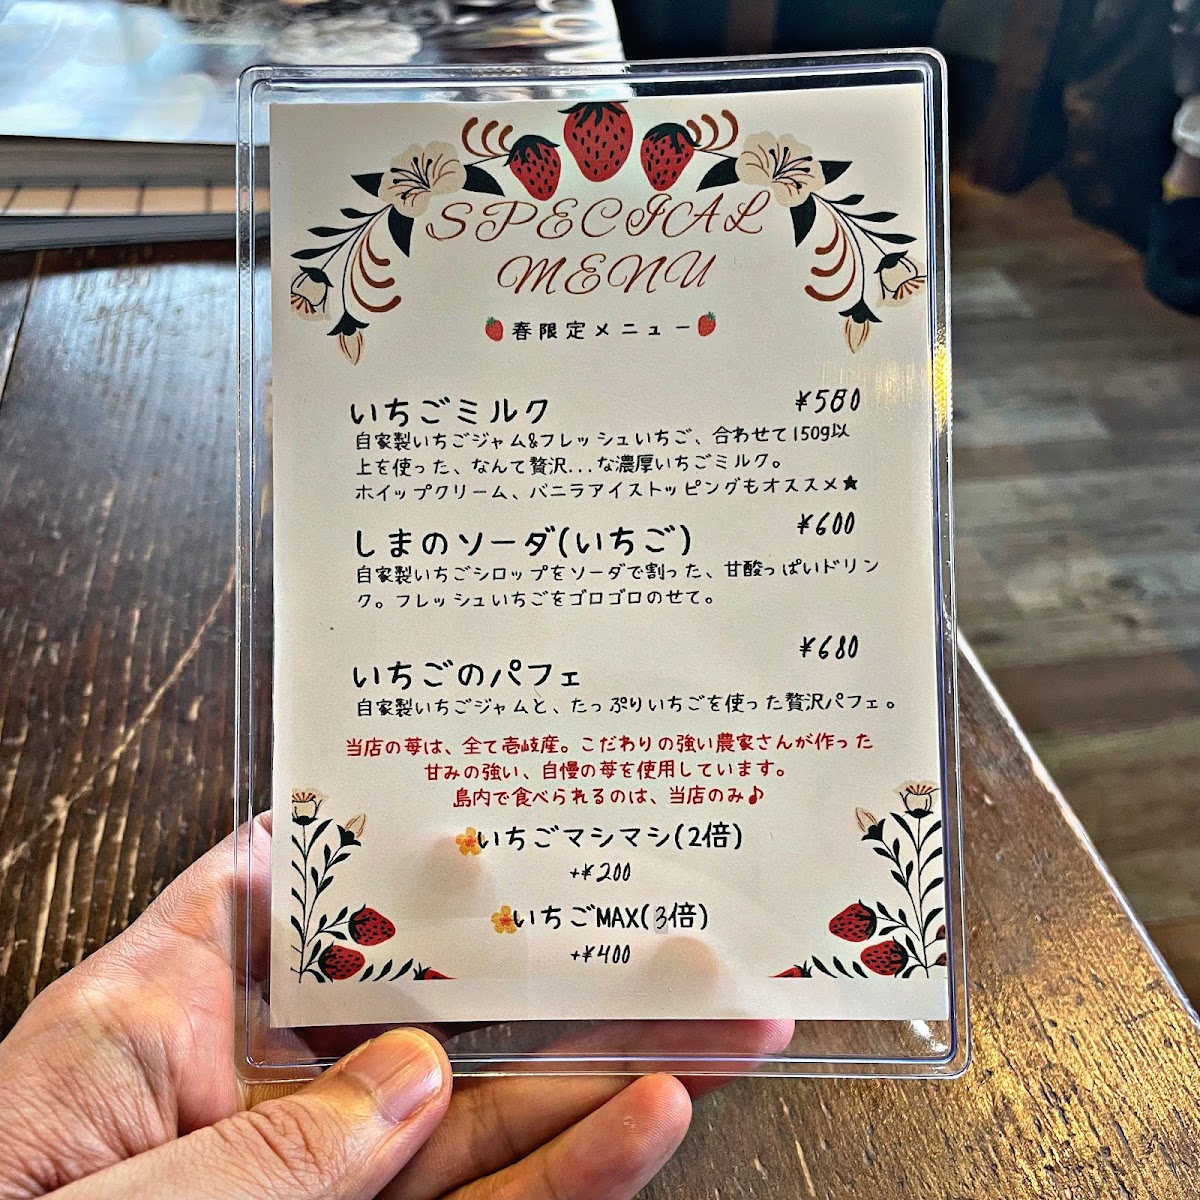 SPECIAL
MENU
春限定メニュー
いちごミルク
¥580
自家製いちごジャム&フレッシュいちご、合わせて150g以
上を使った、なんて贅沢...な濃厚いちごミルク。
ホイップクリーム、バニラアイストッピングもオススメ★
しまのソーダ(いちご)
¥600
自家製いちごシロップをソーダで割った、甘酸っぱいドリン
ク。フレッシュいちごをゴロゴロのせて。
いちごのパフェ
¥680
自家製いちごジャムと、たっぷりいちごを使った贅沢パフェ。
当店の苺は、全て壱岐産。こだわりの強い農家さんが作った
甘みの強い、自慢の苺を使用しています。
島内で食べられるのは、当店のみ♪
いちごマシマシ(2倍)
+¥200
いちごMAX(3倍)
+¥400